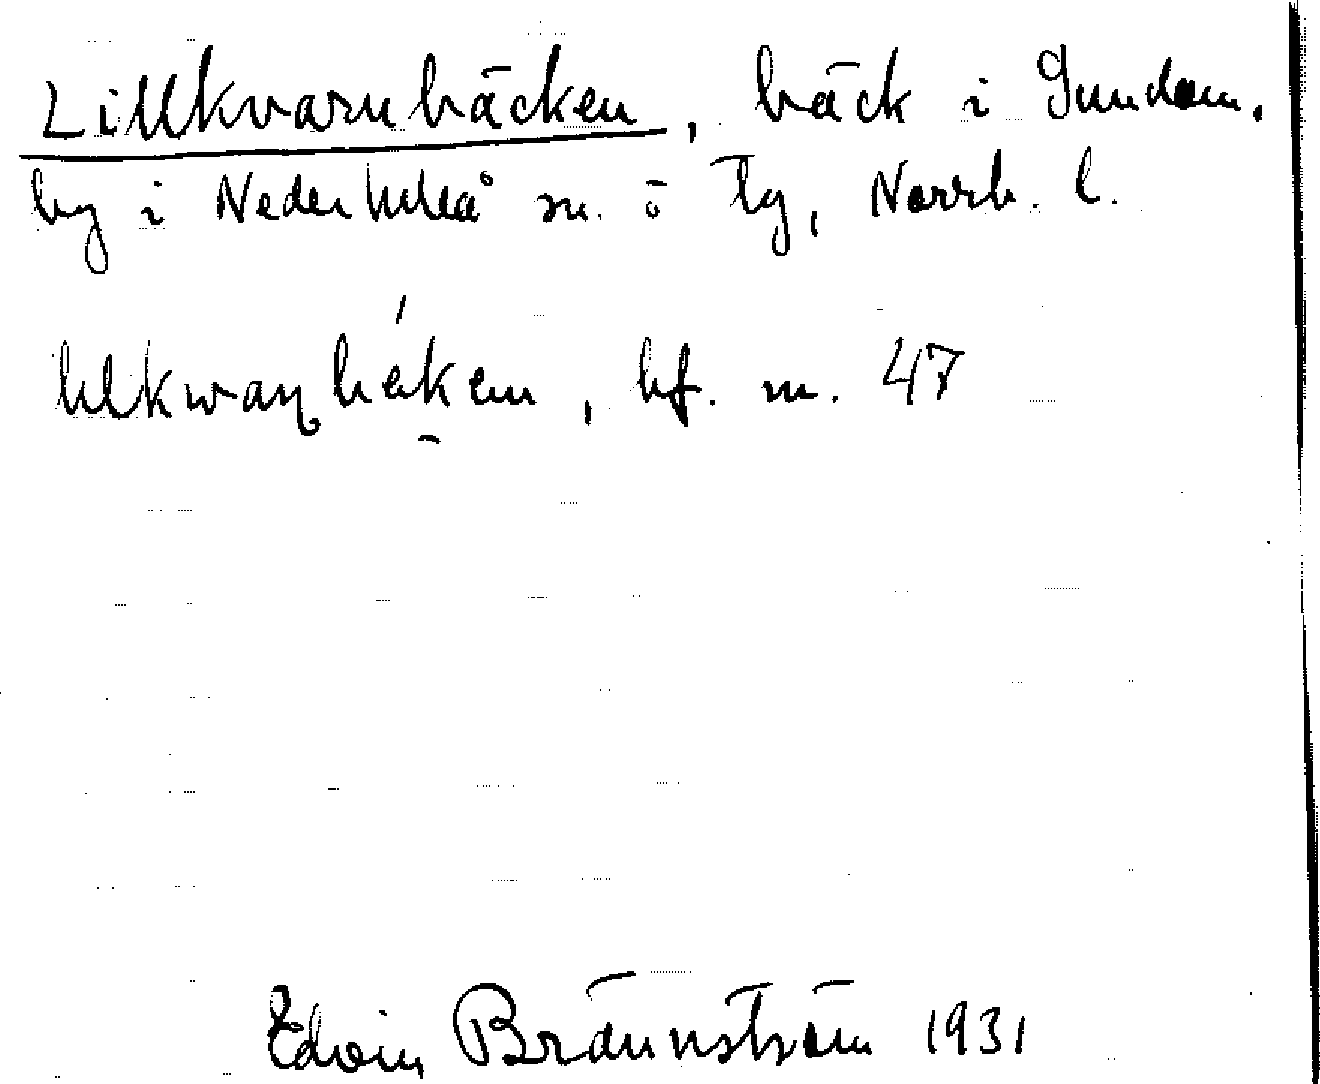 Lillkvarnbäcken, bäck i Sundom,
by i Nederluleå sn. o Tg, Norrb. l.
bf. m. 47
Edvin Brännström 1931